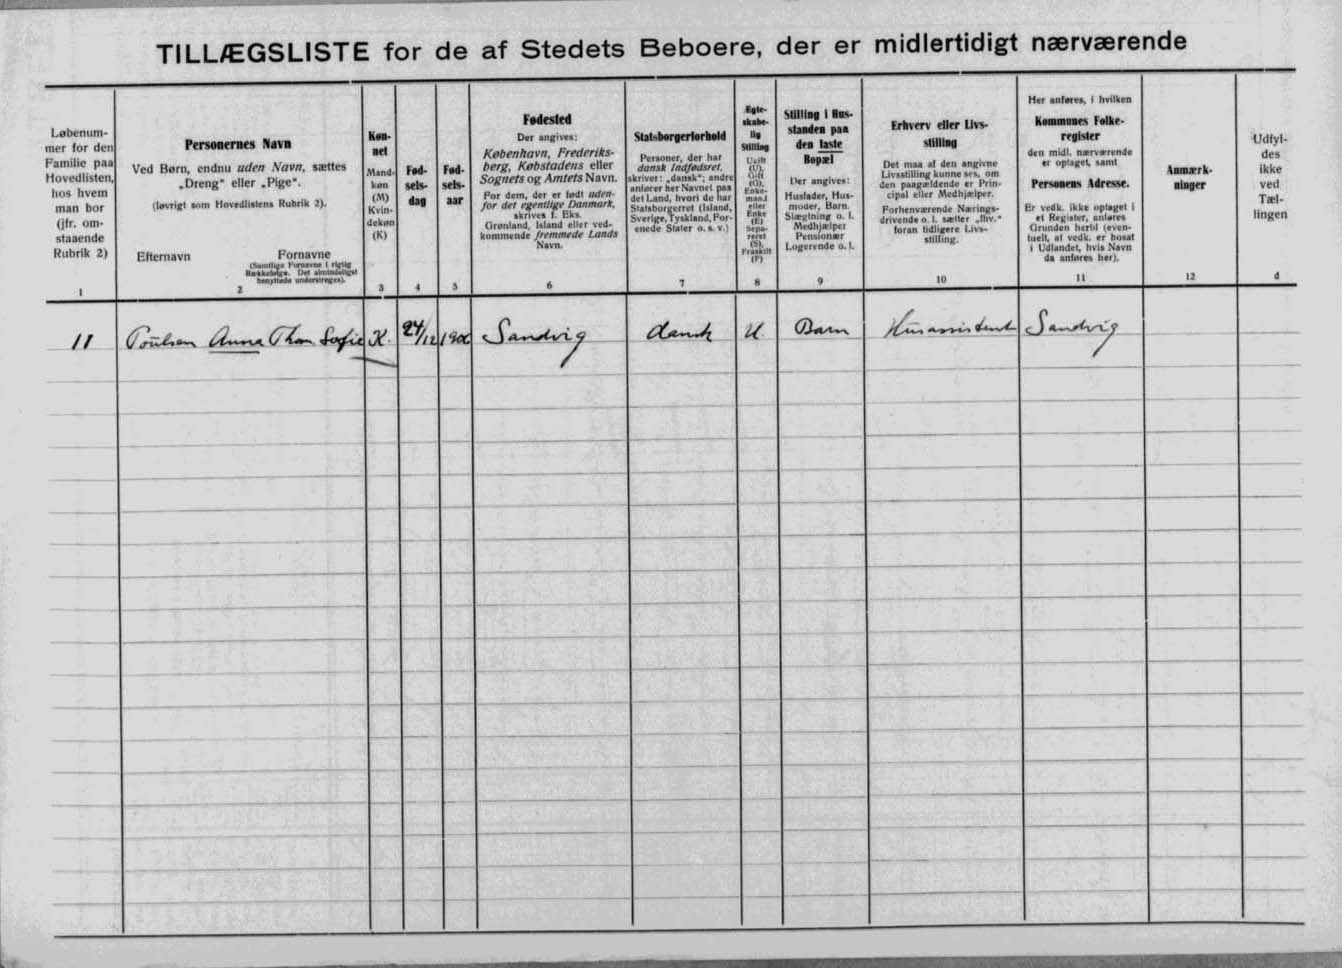 TILLÆGSLISTE for de af Stedets Beboere, der er midlertidigt nærværende
Løbenum-
mer for den
Familie paa
Hovedlisten,
hos hvem
man bor
(jfr. om-
staaende
Rubrik 2)
1
Personernes Navn
Ved Børn, endnu uden Navn, sættes
„Dreng“ eller „Pige“.
(Iøvrigt som Hovedlistens Rubrik 2).
Efternavn Fornavne
(Samtlige Fornavne i rigtig
Rækkefølge. Det almindeligst
benyttede understreges).
2
Køn-
net
Mand-
køn
(M)
Kvin-
dekøn
(K)
3
Fød-
sels-
dag
4
Fød-
sels-
aar
5
Fødested
Der angives:
København, Frederiks-
berg, Købstadens eller
Sognets og Amtets Navn.
For dem, der er født uden-
for det egentlige Danmark,
skrives f. Eks.
Grønland, Island eller ved-
kommende fremmede Lands
Navn.
6
Statsborgerforhold
Personer, der har
dansk Indfødsret,
skriver: „dansk“; andre
anfører her Navnet paa
det Land, hvori de har
Statsborgerret (Island,
Sverige, Tyskland, For-
enede Stater o. s. v.)
7
Ægte-
skabe-
lig
Stilling
Ugift
(U),
Gift
(G),
Enke-
mand
eller
Enke
(E)
Sepa-
reret
(S),
Fraskilt
(F)
8
Stilling i Hus-
standen paa
den faste
Bopæl
Der angives:
Husfader, Hus-
moder, Barn,
Slægtning o. l.
Medhjælper
Pensionær
Logerende o. l.
9
Erhverv eller Livs-
stilling
Det maa af den angivne
Livsstilling kunne ses, om
den paagældende er Prin-
cipal eller Medhjælper.
Forhenværende Nærings-
drivende o. l. sætter „fhv.“
foran tidligere Livs-
stilling.
10
Her anføres, i hvilken
Kommunes Folke-
register
den midl. nærværende
er optaget, samt
Personens Adresse.
Er vedk. ikke optaget i
et Register, anføres
Grunden hertil (even-
tuelt, at vedk. er bosat
i Udlandet, hvis Navn
da anføres her).
11
Anmærk-
ninger
12
Udfyl-
des
ikke
ved
Tæl-
lingen
d
11 Poulsen Anna Thom Sofie K. 24/12 1900 Sandvig dansk U. Barn Husassistent Sandvig